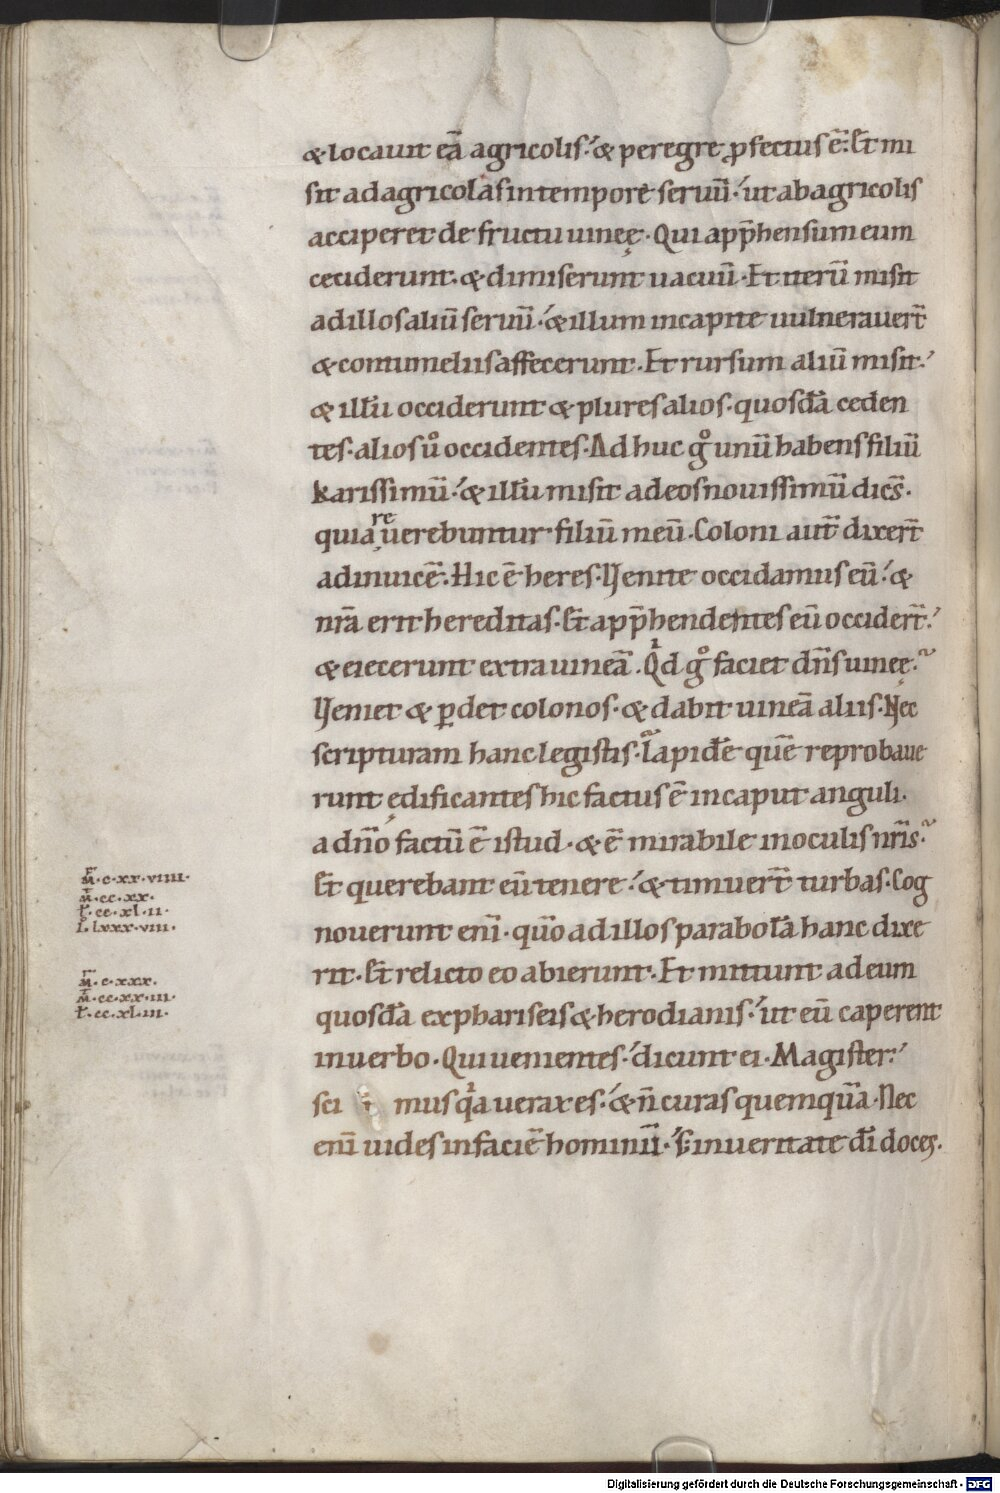 & locauit eā agricolis·́ & peregre ꝓfectus ē·́ Et mi
sit ad agricolas in tempore seruū·́ ut ab agricolis
acciperet de fructu uineę· Qui app̄hensum eum
ceciderunt· & dimiserunt uacuū· Et iterū misit
ad illos aliū seruū·́ & illum in capite uulnerauer̄t
& contumeliis affecerunt· Et rursum aliū misit·́
& illū occiderunt & plures alios· quosdā ceden
tes· alios ůo occidentes· Adhuc gͦ unū habens filiū
karissimū·́ & illū misit ad eos nouissimū dic̄s·
quia reuerebuntur filiū meū· Coloni aut̄ dixer̄t
ad inuicē· Hic ē heres· Venite occidamus eū·́ &
nr̄a erit hereditas· Et app̄hendentes eū occider̄t·́
& eiecerunt extra uineā· Qͥd gͦ faciet dn̄s uineę·
Veniet & ꝑdet colonos· & dabit uineā aliis· Nec
scripturam hanc legistis· Lapidē quē reprobaue
runt ędificantes hic factus ē in caput anguli·
a dn̄o factū ē istud· & ē mirabile in oculis nr̄is·
Et querebant eū tenere·́ & timuer̄t turbas· Cog
nouerunt enī· qūo ad illos parabolā hanc dixe
rit· Et relicto eo abierunt· Et mittunt ad eum
quosdā ex phariseis & herodianis·́ ut eū caperent
in uerbo· Qui uenientes·́ dicunt ei· Magister·́
sci mus qͥa uerax es·́ & n̄ curas quemquā· Nec
enī uides in faciē hominū·́ s; in ueritate dī doces·
m̄·c·xx·viiii·
m̄·cc·xx·
t̄·cc·xl·ii·
l̄·lxxx·viii·
m̄·c·xxx·
m̄·cc·xx·iii·
t̄·cc·xl·iii·
Digitalisierung gefördert durch die Deutsche Forschungsgemeinschaft - DFG